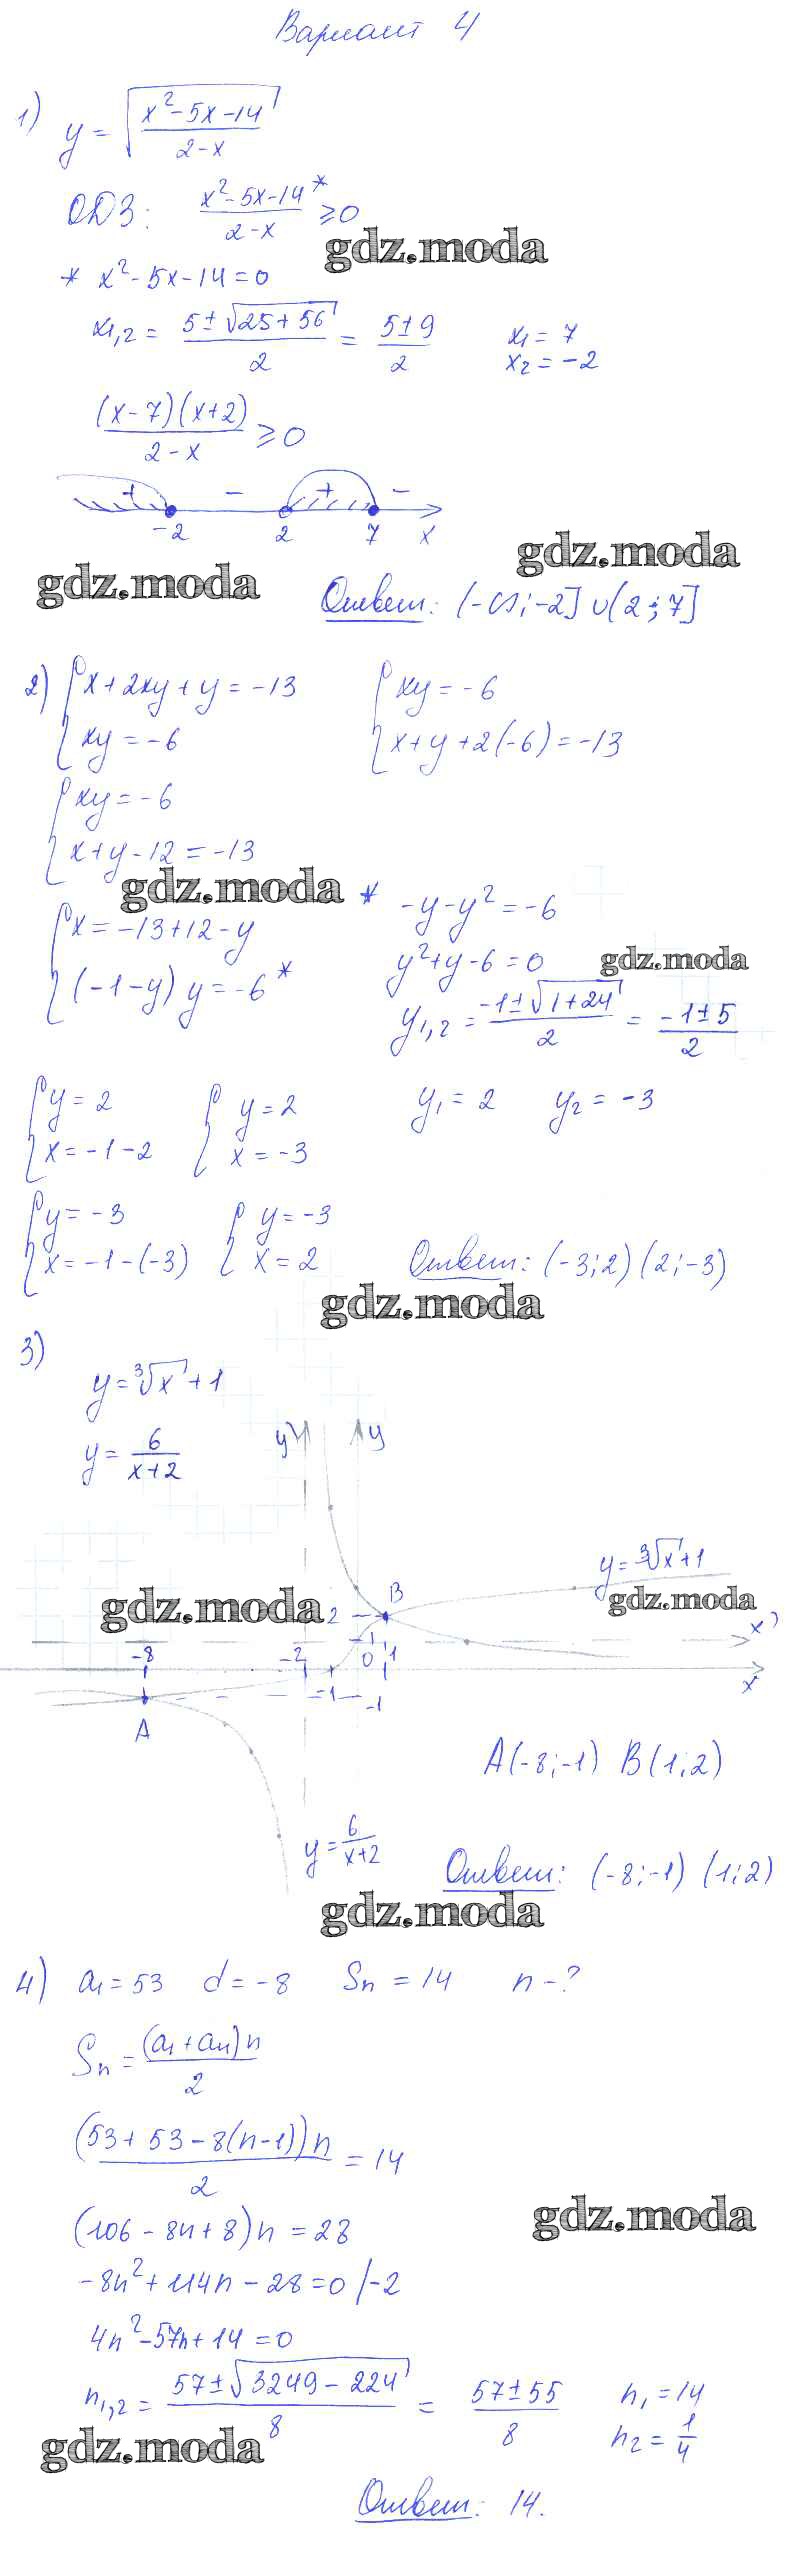 Вариант 4
1) y = √((x² - 5x - 14)/(2 - x))
ОДЗ: (x² - 5x - 14)*/(2 - x) ≥ 0
gdz.moda
* x² - 5x - 14 = 0
x₁,₂ = (5 ± √(25 + 56))/2 = (5 ± 9)/2 x₁ = 7 x₂ = -2
((x - 7)(x + 2))/(2 - x) ≥ 0
+ - + -
-2 2 7 x
gdz.moda
gdz.moda
Ответ: (-∞; -2] ∪ (2; 7]
2) { x + 2xy + y = -13 { xy = -6
xy = -6 x + y + 2(-6) = -13
{ xy = -6
x + y - 12 = -13
gdz.moda
* -y - y² = -6
{ x = -13 + 12 - y
y² + y - 6 = 0
gdz.moda
(-1 - y) y = -6 *
y₁,₂ = (-1 ± √(1 + 24))/2 = (-1 ± 5)/2
{ y = 2 { y = 2 y₁ = 2 y₂ = -3
x = -1 - 2 x = -3
{ y = -3 { y = -3
x = -1 - (-3) x = 2 Ответ: (-3; 2) (2; -3)
gdz.moda
3)
y = ∛x + 1
y = 6/(x + 2)
y' y
y = ∛x + 1
gdz.moda 2 B gdz.moda
x'
-8 -2 0 1 1
x
-1 -1
A
A(-8; -1) B(1; 2)
y = 6/(x + 2)
Ответ: (-8; -1) (1; 2)
gdz.moda
4) a₁ = 53 d = -8 Sₙ = 14 n - ?
Sₙ = ((a₁ + aₙ)n)/2
((53 + 53 - 8(n - 1))n)/2 = 14
gdz.moda
(106 - 8n + 8)n = 28
-8n² + 114n - 28 = 0 /-2
4n² - 57n + 14 = 0
n₁,₂ = (57 ± √(3249 - 224))/8 = (57 ± 55)/8 n₁ = 14
n₂ = 1/4
gdz.moda
Ответ: 14.